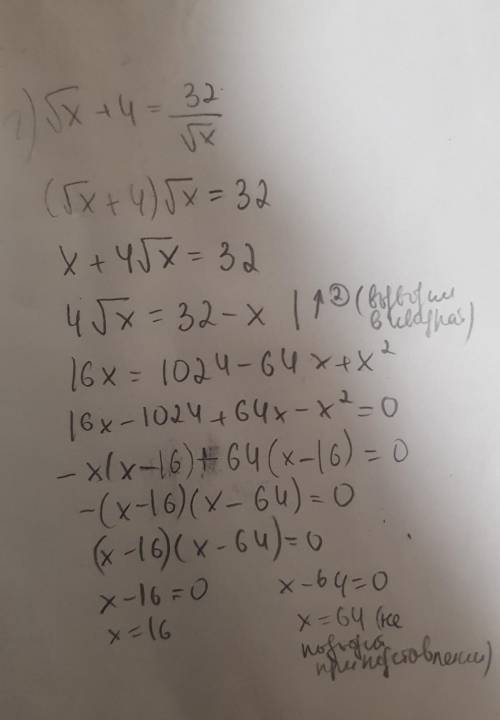 2) √x + 4 = 32/√x
(√x + 4)√x = 32
x + 4√x = 32
4√x = 32 - x | ↑② (возводим
в квадрат)
16x = 1024 - 64x + x²
16x - 1024 + 64x - x² = 0
- x(x - 16) + 64(x - 16) = 0
-(x - 16)(x - 64) = 0
(x - 16)(x - 64) = 0
x - 16 = 0 x - 64 = 0
x = 16 x = 64 (не
при подставлении)